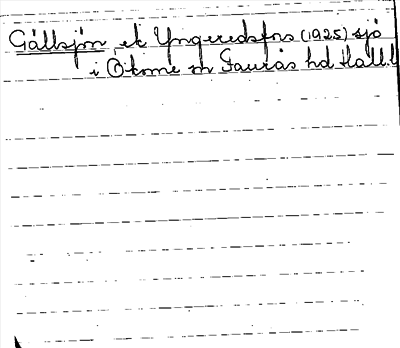 Gällsjön, ek Yngeredsfors (1925) sjö
i Okome sn Faurås hd Hall.l